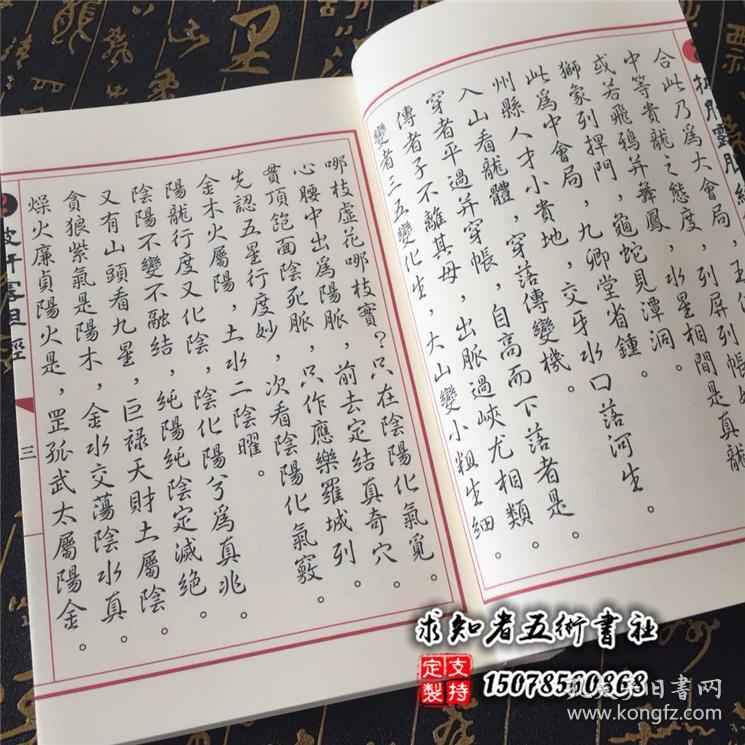 合此乃爲大會局，列屏列帳
中等貴龍之態度，水星相間是真龍
或若飛鴉并舞鳳，龜蛇見潭洞。
獅象列捍門，九卿堂省鍾。
此爲中會局，交牙水口落河生。
州縣人才小貴地，穿落傳變機。
入山看龍體，自高而下落者是。
穿者平過并穿帳，出脈過峽尤相類。
傳者子不離其母，大山變小粗生細。
變者二五變化生，
哪枝虛花哪枝實？只在陰陽化氣覓。
心腰中出爲陽脈，前去定結真奇穴。
貫頂飽面陰死脈，只作應樂羅城列。
先認五星行度妙，次看陰陽化氣竅。
金木火屬陽，土水二陰曜。
陽龍行度又化陰，陰化陽兮爲真兆。
陰陽不變不融結，純陽純陰定滅絕。
又有山頭看九星，巨禄天財土屬陰。
貪狼紫氣是陽木，金水交蕩陰水真。
燥火廉貞陽火是，罡孤武太屬陽金。
三
求知者五術書社
支持定製
15078510868
旧書网
www.kongfz.com